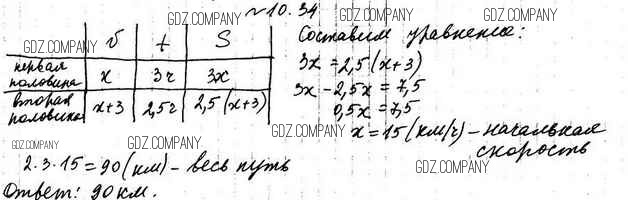 №10.34
GDZ.COMPANY GDZ.COMPANY GDZ.COMPANY
v t S
первая половина x 3ч 3x
вторая половина x+3 2,5ч 2,5(x+3)
GDZ.COMPANY GDZ.COMPANY
GDZ.COMPANY
Составим уравнение:
3x = 2,5(x+3)
GDZ.COMPANY
3x - 2,5x = 7,5
0,5x = 7,5
GDZ.COMPANY
x = 15 (км/ч) - начальная
скорость
GDZ.COMPANY
GDZ.COMPANY GDZ.COMPANY
2·3·15 = 90 (км) - весь путь
Ответ: 90 км.